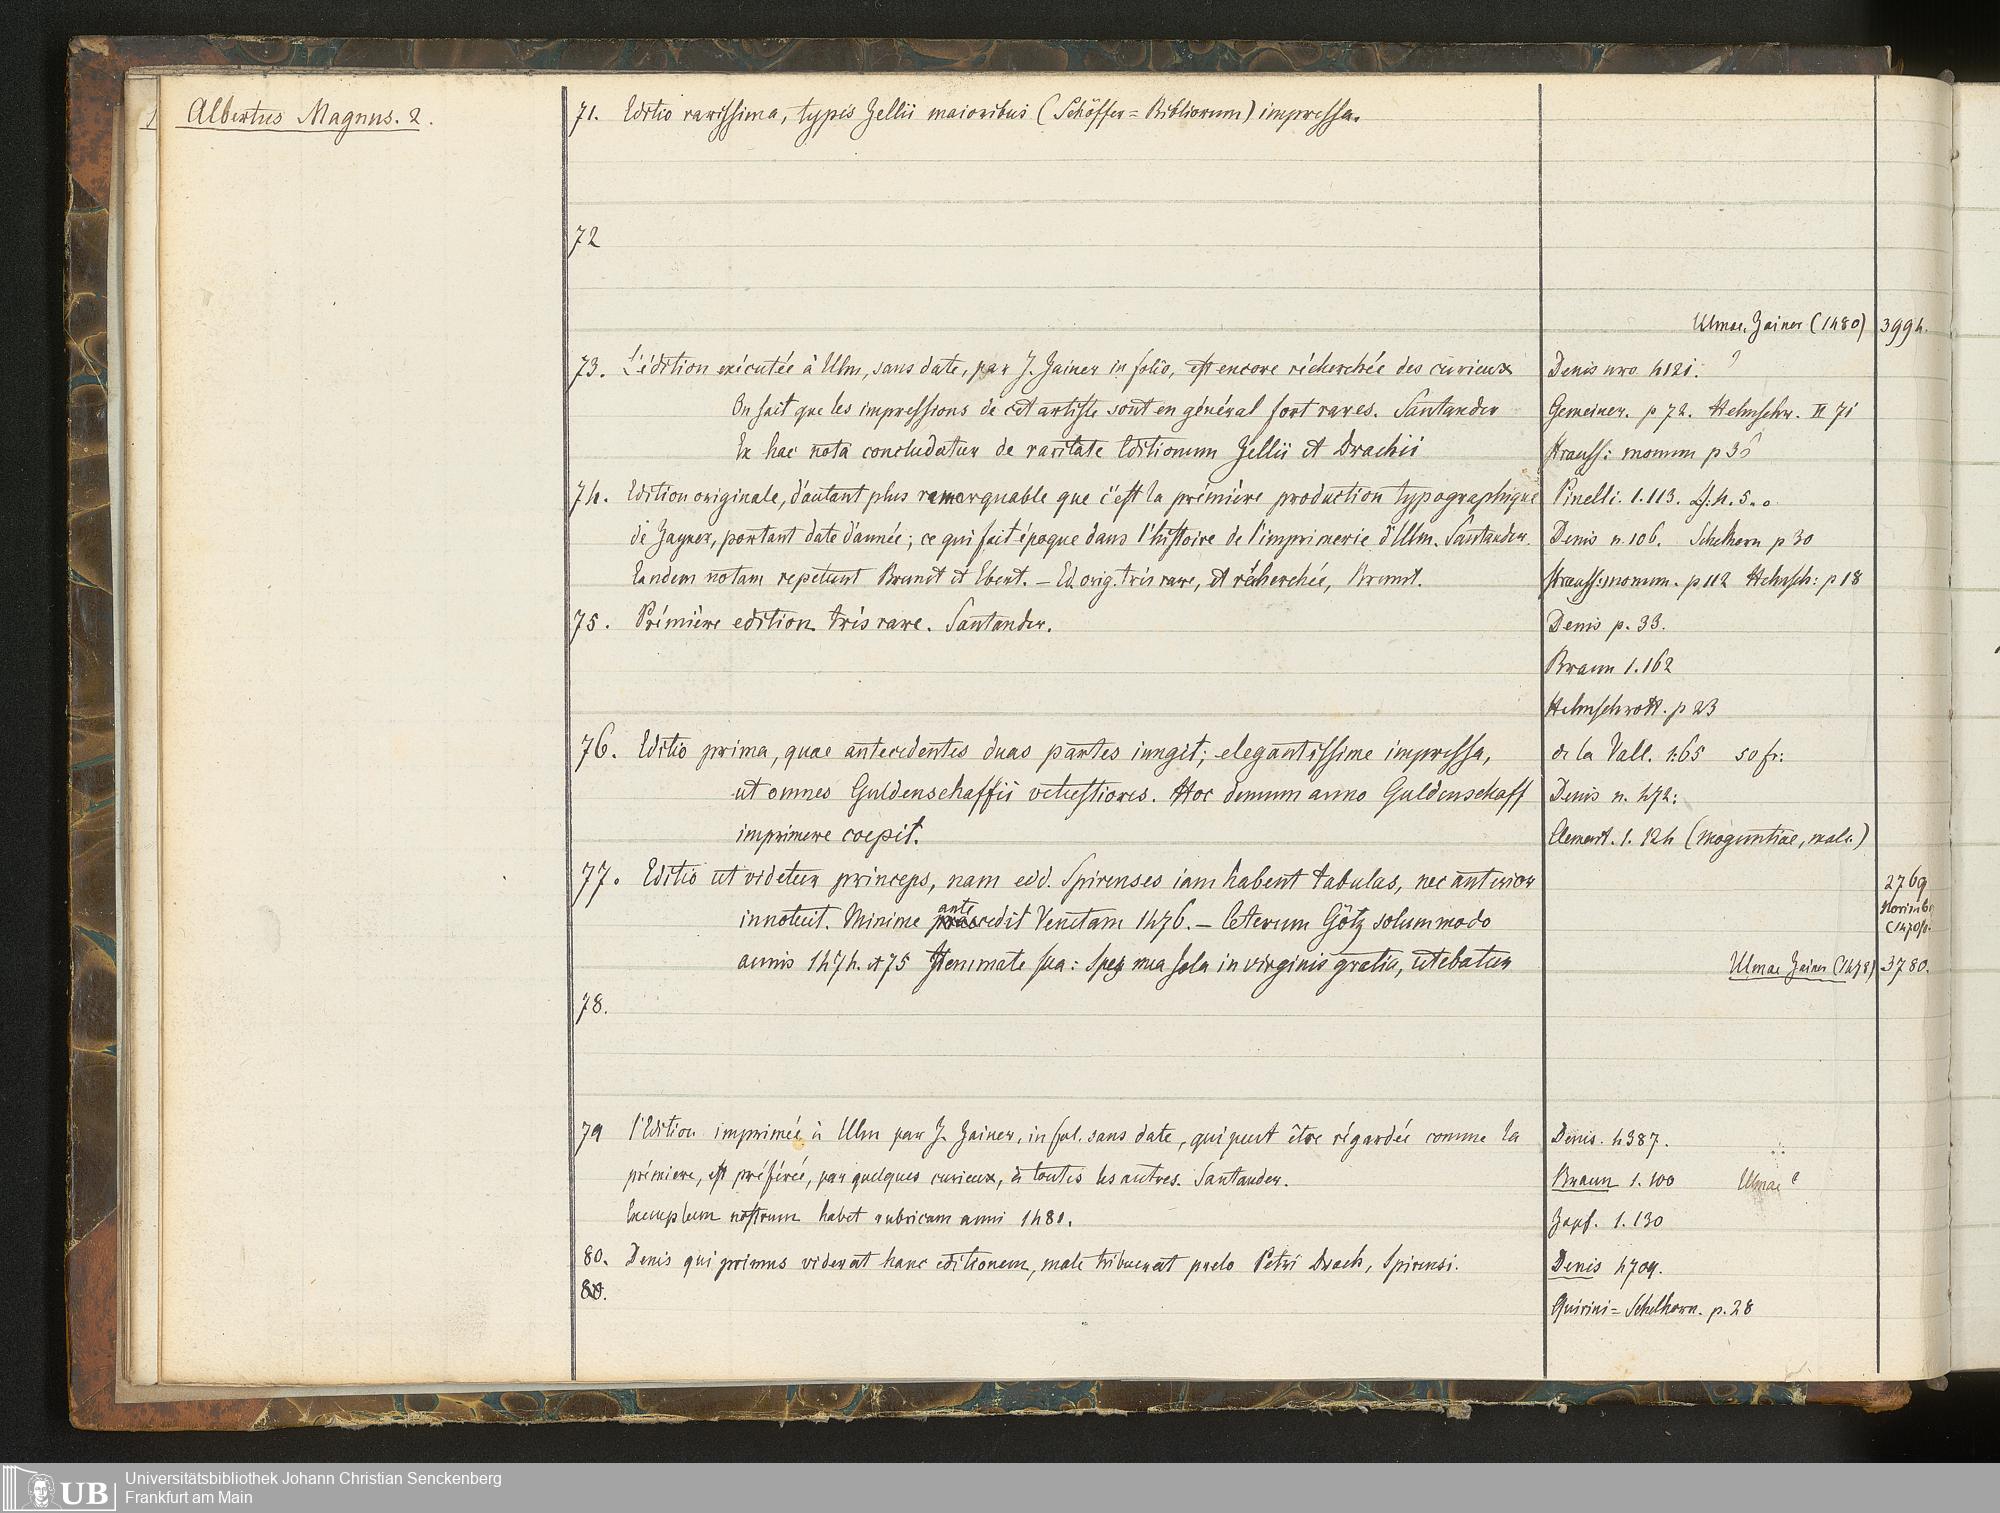 Albertus Magnus. 2.
71. Editio rarissima, typis Zellii maioribus (Schöffer = Bibliorum) impressa.
72
Ulmae. Zainer (1480) 3994.
73. L'édition exécutée à Ulm, sans date, par J. Zainer in folio, est encore récherchée des curieux Denis nro 4121. ?
On sait que les impressions de cet artiste sont en général fort rares. Santander Gemeiner. p 72. Helmschr. II 71
Ex hac nota concludatur de raritate Editionum Zellii et Drachii Strauss: monum p 36
74. Edition originale, d'autant plus remarquable que c'est la prémière production typographique Pinelli. 1. 113.
de Zayner, portant date d'année; ce qui fait époque dans l'histoire de l'imprimerie d'Ulm. Santander. Denis n. 106. Schelhorn p 30
Eandem notam repetunt Brunet et Ebert. – Ed. orig. très rare, et récherchée, Brunet. Strauss: monum. p 112 Helmsch: p 18
75. Prémière edition très rare. Santander. Denis p. 33.
Braun 1. 162
Helmschrott. p 23
76. Editio prima, quae antecedentes duas partes iungit; elegantissime impressa, de la Vall. 1:65 50 fr:
ut omnes Guldenschaffii vetustiores. Hoc demum anno Guldenschaff Denis n. 472:
imprimere coepit. Clement. 1. 124 (Moguntiae, male.)
77. Editio ut videtur princeps, nam edd. Spirenses iam habent tabulas, nec anterior 2769
innotuit. Minime antecedit Venetam 1476. – Ceterum Götz solummodo Norimb. (1470)
annis 1474. et 75 stemmate sua: Spes mea sola in virginis gratia, utebatur Ulmae Zainer (1478) 3780.
78.
79 l'Edition imprimée à Ulm par J. Zainer, in fol. sans date, qui peut être régardée comme la Denis. 4387.
prémiere, est préférée, par quelques curieux, à toutes les autres. Santander. Braun 1. 100 Ulmae ?
Exemplum nostrum habet rubricam anni 1481. Zapf. 1. 130
80. Denis qui primus viderat hanc editionem, male tribuerat prelo Petri Drach, Spirensi. Denis 4709.
80. Quirini = Schelhorn. p. 28
UB Universitätsbibliothek Johann Christian Senckenberg
Frankfurt am Main